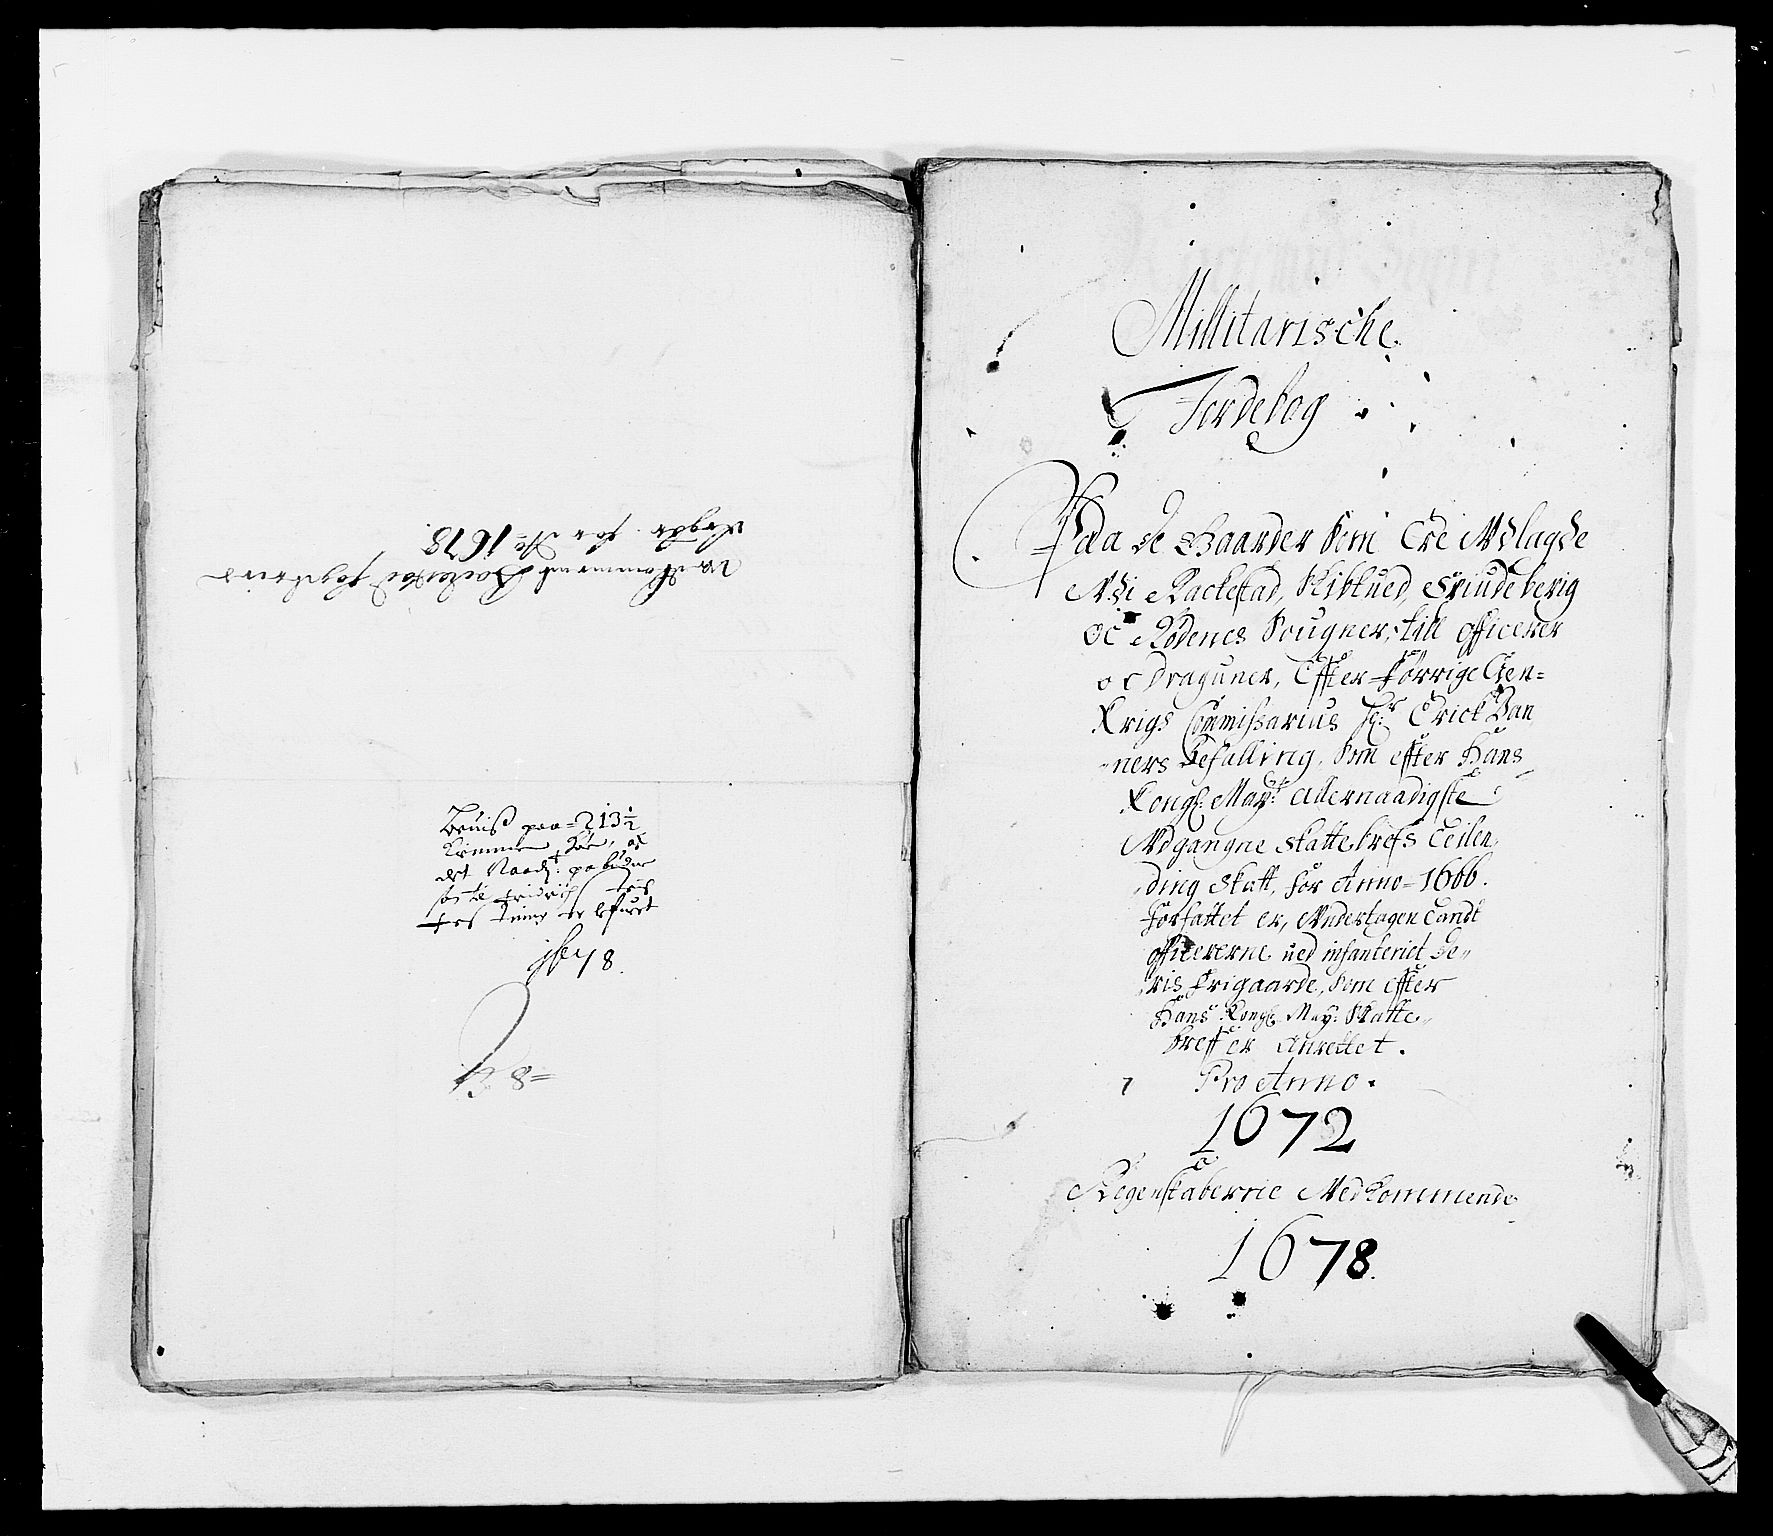 Beviß paa = 213½
det Naad:
1678.
No 8 =
for Ao 1678.
Millitarische
Jordebog
Paa de Gaarder som Ere Udlagde
Udi Rackestad, Skibtued, Spindeberig
oc Rødenes Sougner, till officerer
oc Draguner, Effter Forrige Gen=
Krigs Commissarius Hr: Erick Ban
ners Befalling, som effter Hans
Kongl: May:ts allernaadigste
Udgangne Skattebrefs Ceilen
ding Skatt, for Anno = 1666.
Forfattet er, Undertagen Landt
officererne ued infanteriet de„
ris Frigaarde, som effter
Hans Kongl: May: Skatte„
breff er Anrettet.
Pro Anno.
1672
Regenskaberne Vedkommende
1678.